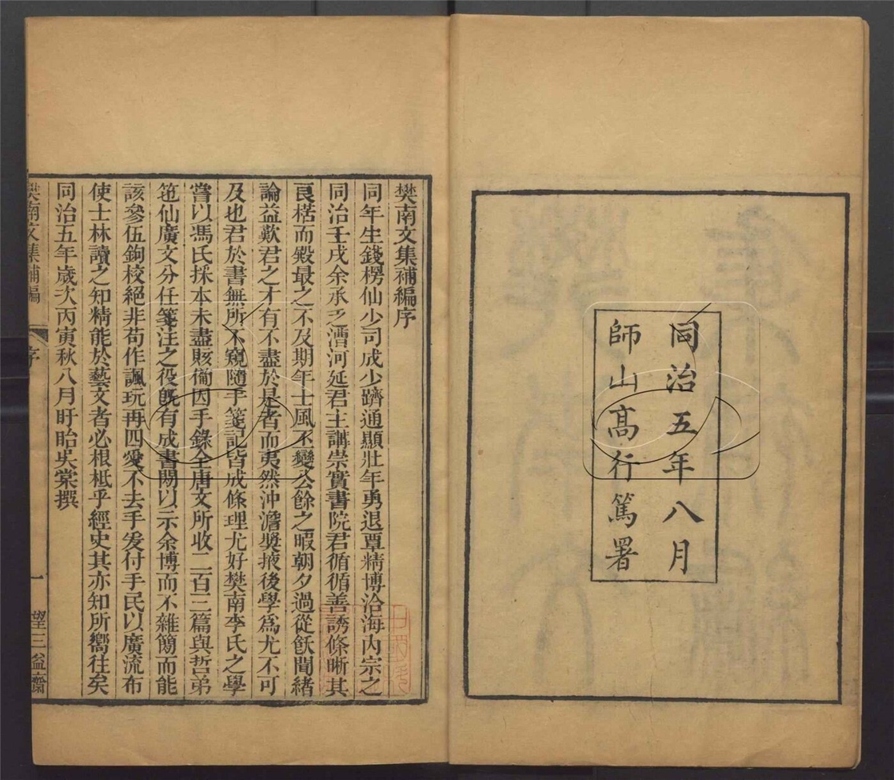 同治五年八月
師山高行篤署
樊南文集補編序
同年生錢楞仙少司成少躋通顯壯年勇退覃精博洽海内宗之
同治壬戌余承乏漕河延君主講崇實書院君循循善誘條晰其
良楛而殿最之不及期年士風丕變公餘之暇朝夕過從飫聞緒
論益歎君之才有不盡於是者而夷然沖澹獎掖後學爲尤不可
及也君於書無所不窺隨手箋記皆成條理尤好樊南李氏之學
嘗以馮氏採本未盡賅備因手錄全唐文所收二百三篇與哲弟
笹仙廣文分任箋注之役旣有成書閒以示余博而不雜簡而能
該參伍鉤校絕非苟作諷玩再四愛不去手爰付手民以廣流布
使士林讀之知精能於藝文者必根柢乎經史其亦知所嚮往矣
同治五年歲次丙寅秋八月盱眙吳棠撰
樊南文集補編
序
一
望三益齋